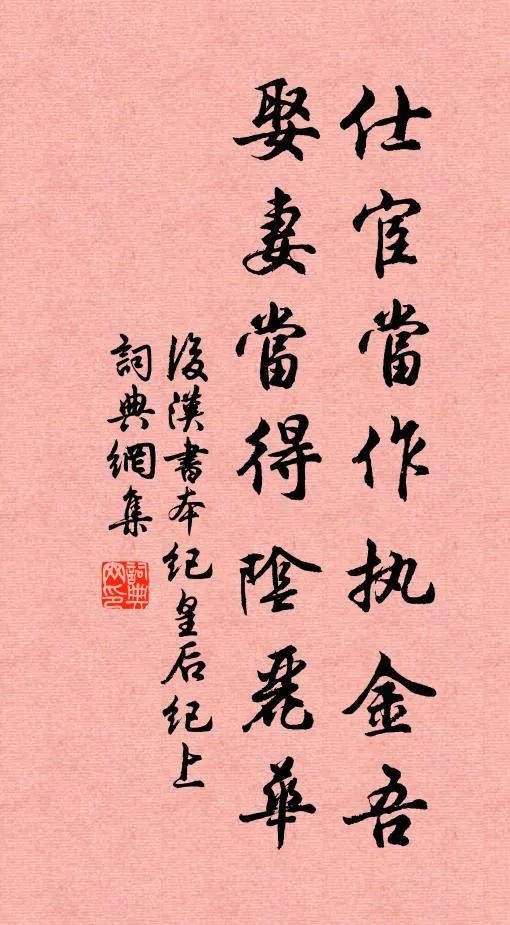 仕宦當作执金吾
娶妻當得陰麗華
後漢書本紀皇后紀上
詞典網集
詞典網印